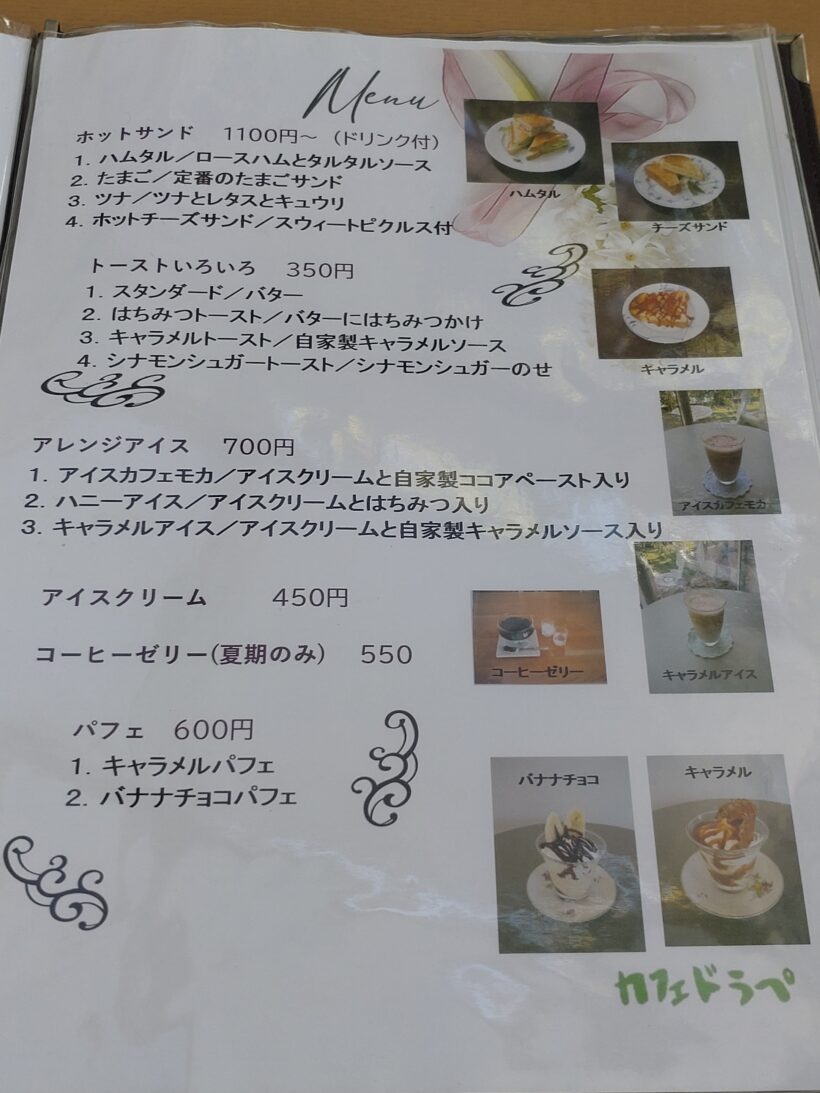 Menu
ホットサンド 1100円～ （ドリンク付）
1. ハムタル／ロースハムとタルタルソース
2. たまご／定番のたまごサンド
3. ツナ／ツナとレタスとキュウリ
4. ホットチーズサンド／スウィートピクルス付
ハムタル
チーズサンド
トーストいろいろ 350円
1. スタンダード／バター
2. はちみつトースト／バターにはちみつかけ
3. キャラメルトースト／自家製キャラメルソース
4. シナモンシュガートースト／シナモンシュガーのせ
キャラメル
アレンジアイス 700円
1. アイスカフェモカ／アイスクリームと自家製ココアペースト入り
2. ハニーアイス／アイスクリームとはちみつ入り
3. キャラメルアイス／アイスクリームと自家製キャラメルソース入り
アイスカフェモカ
アイスクリーム 450円
コーヒーゼリー(夏期のみ) 550
コーヒーゼリー
キャラメルアイス
パフェ 600円
1. キャラメルパフェ
2. バナナチョコパフェ
バナナチョコ
キャラメル
カフェドラペ